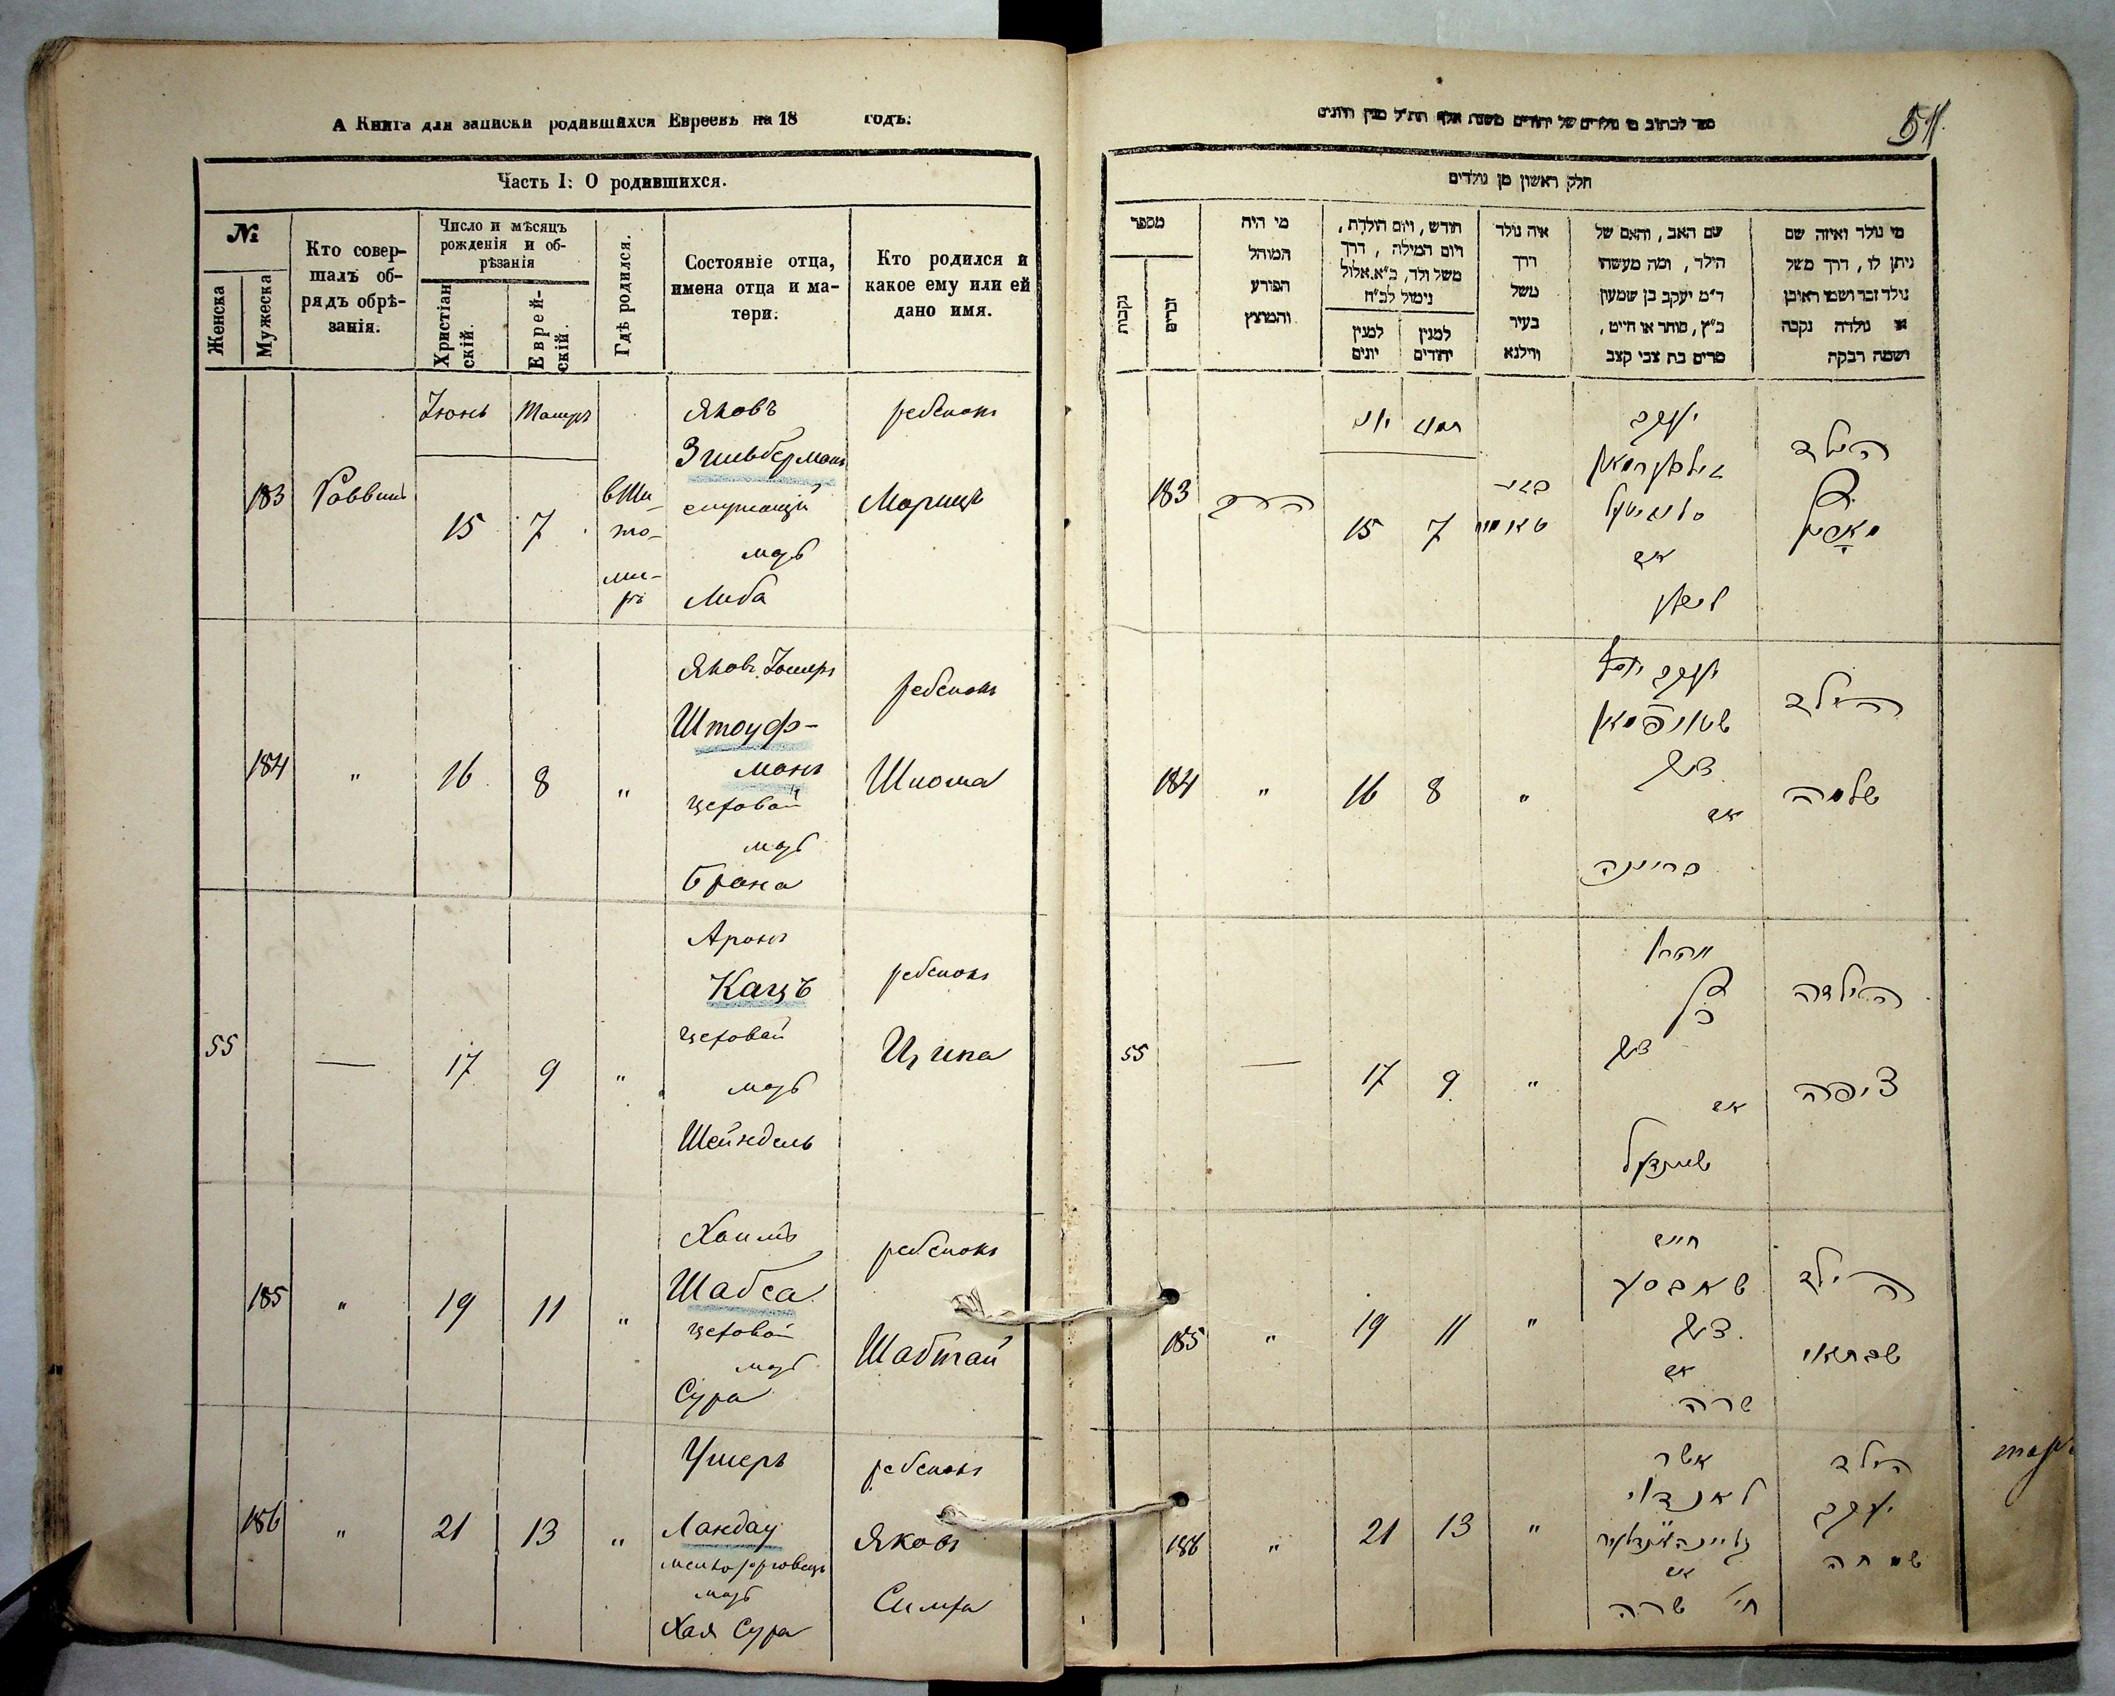 А Книга для записки родившихся Евреевъ на 18 годъ.
Часть I: О родившихся.
№
Женска
Мужеска
Кто совер-
шалъ об-
рядъ обрѣ-
занія.
Число и мѣсяцъ
рожденія и об-
рѣзанія
Христіан
скій.
Еврей-
скій.
Гдѣ родился.
Состояніе отца,
имена отца и ма-
тери.
Кто родился и
какое ему или ей
дано имя.
Іюнь
183
Раввинъ
15
7
в Жи
то-
ми-
рѣ
Яковъ
Зильберманъ
служащій
мать
Либа
ребенокъ
Морицъ
184
"
16
8
"
Яковъ Іосифъ
Штоуф-
манъ
цеховой
мать
Брана
ребенокъ
Шлома
55
—
17
9
"
Аронъ
Кацъ
цеховой
мать
Шейндель
ребенокъ
Ципа
185
"
19
11
"
Хаимъ
Шабса
цеховой
мать
Сура
ребенокъ
Шабтай
186
"
21
13
"
Ушеръ
Ландау
мать
Хая Сура
ребенокъ
Яковъ
Симха
51
חלק ראשון מן נולדים
מספר
נקבות
זכרים
מי היה
המוהל
הפורע
והמוצץ
חודש, ויום הולדת,
ויום המילה, דרך
משל ולד, כ"א אלול
נימול לכ"ח
למנין
יונים
למנין
יהודים
איה נולד
דרך
משל
בעיר
ווילנא
שם האב, והאם של
הילד, ומה מעשהו
ד"מ יעקב בן שמעון
כ"ץ, סוחר או חייט,
מרים בת צבי קצב
מי נולד ואיזה שם
ניתן לו, דרך משל
נולד זכר ושמו ראובן
או נולדה נקבה
ושמה רבקה
183
הרב
15
7
יעקב
זילבערמאן
אם
ליבע
הילד
184
"
16
8
"
יעקב יוסף
שטויפמאן
צעך
אם
בריינה
הילד
שלמה
55
—
17
9
"
אהרן
כץ
צעך
אם
שיינדעל
הילדה
ציפה
185
"
19
11
"
חיים
שאבסע
צעך
אם
שרה
הילד
שבתאי
186
"
21
13
"
אשר
לאנדוי
אם
חי' שרה
הילד
יעקב
שמחה